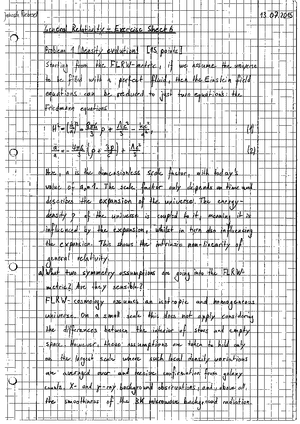 13.07.2015
General Relativity - Exercise Sheet 6
Problem 1 [Density evolution] [15 points]
Starting from the FLRW-metric, if we assume the universe
to be filled with a perfect fluid, then the Einstein field
equations can be reduced to just two equations: the
Friedmann equations
(1)
(2)
Here, a is the dimensionless scale factor, with today's
value of a=1. The scale factor only depends on time and
describes the expansion of the universe. The energy-
density ρ of the universe is coupled to it, meaning it is
influenced by the expansion, whilst in turn also influencing
the expansion. This shows the intrinsic non-linearity of
general relativity.
a) What two symmetry assumptions are going into the FLRW-
metric? Are they sensible?
FLRW-cosmology assumes an isotropic and homogeneous
universe. On a small scale this does not apply considering
the differences between the interior of stars and empty
space. However, these assumptions are taken to hold only
on the largest scale where such local density variations
are averaged over and receive confirmation from galaxy
counts, X- and γ-ray background observations, and, above all,
the smoothness of the 3K microwave background radiation.